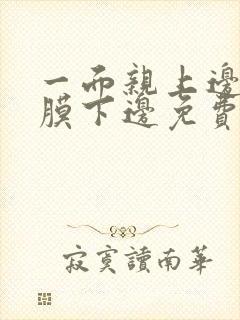 一而親上邊
膜下邊免費
寂寞讀南華